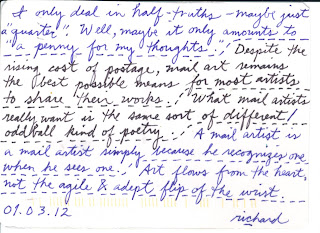 I only deal in half-truths - maybe just
a "quarter". Well, maybe it only amounts to
a "penny for my thoughts"..! Despite the
rising cost of postage, mail art remains
the best possible means for most artists
to share their works..! What mail artists
really want is the same sort of different/
oddball kind of poetry..! A mail artist is
a mail artist simply because he recognizes one
when he sees one..! Art flows from the heart,
not the agile & adept flip of the wrist.
01.03.12
richard